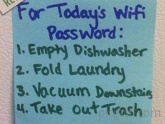 For Today's Wifi
Password:
1. Empty Dishwasher
2. Fold Laundry
3. Vacuum Downstairs
4. Take Out Trash